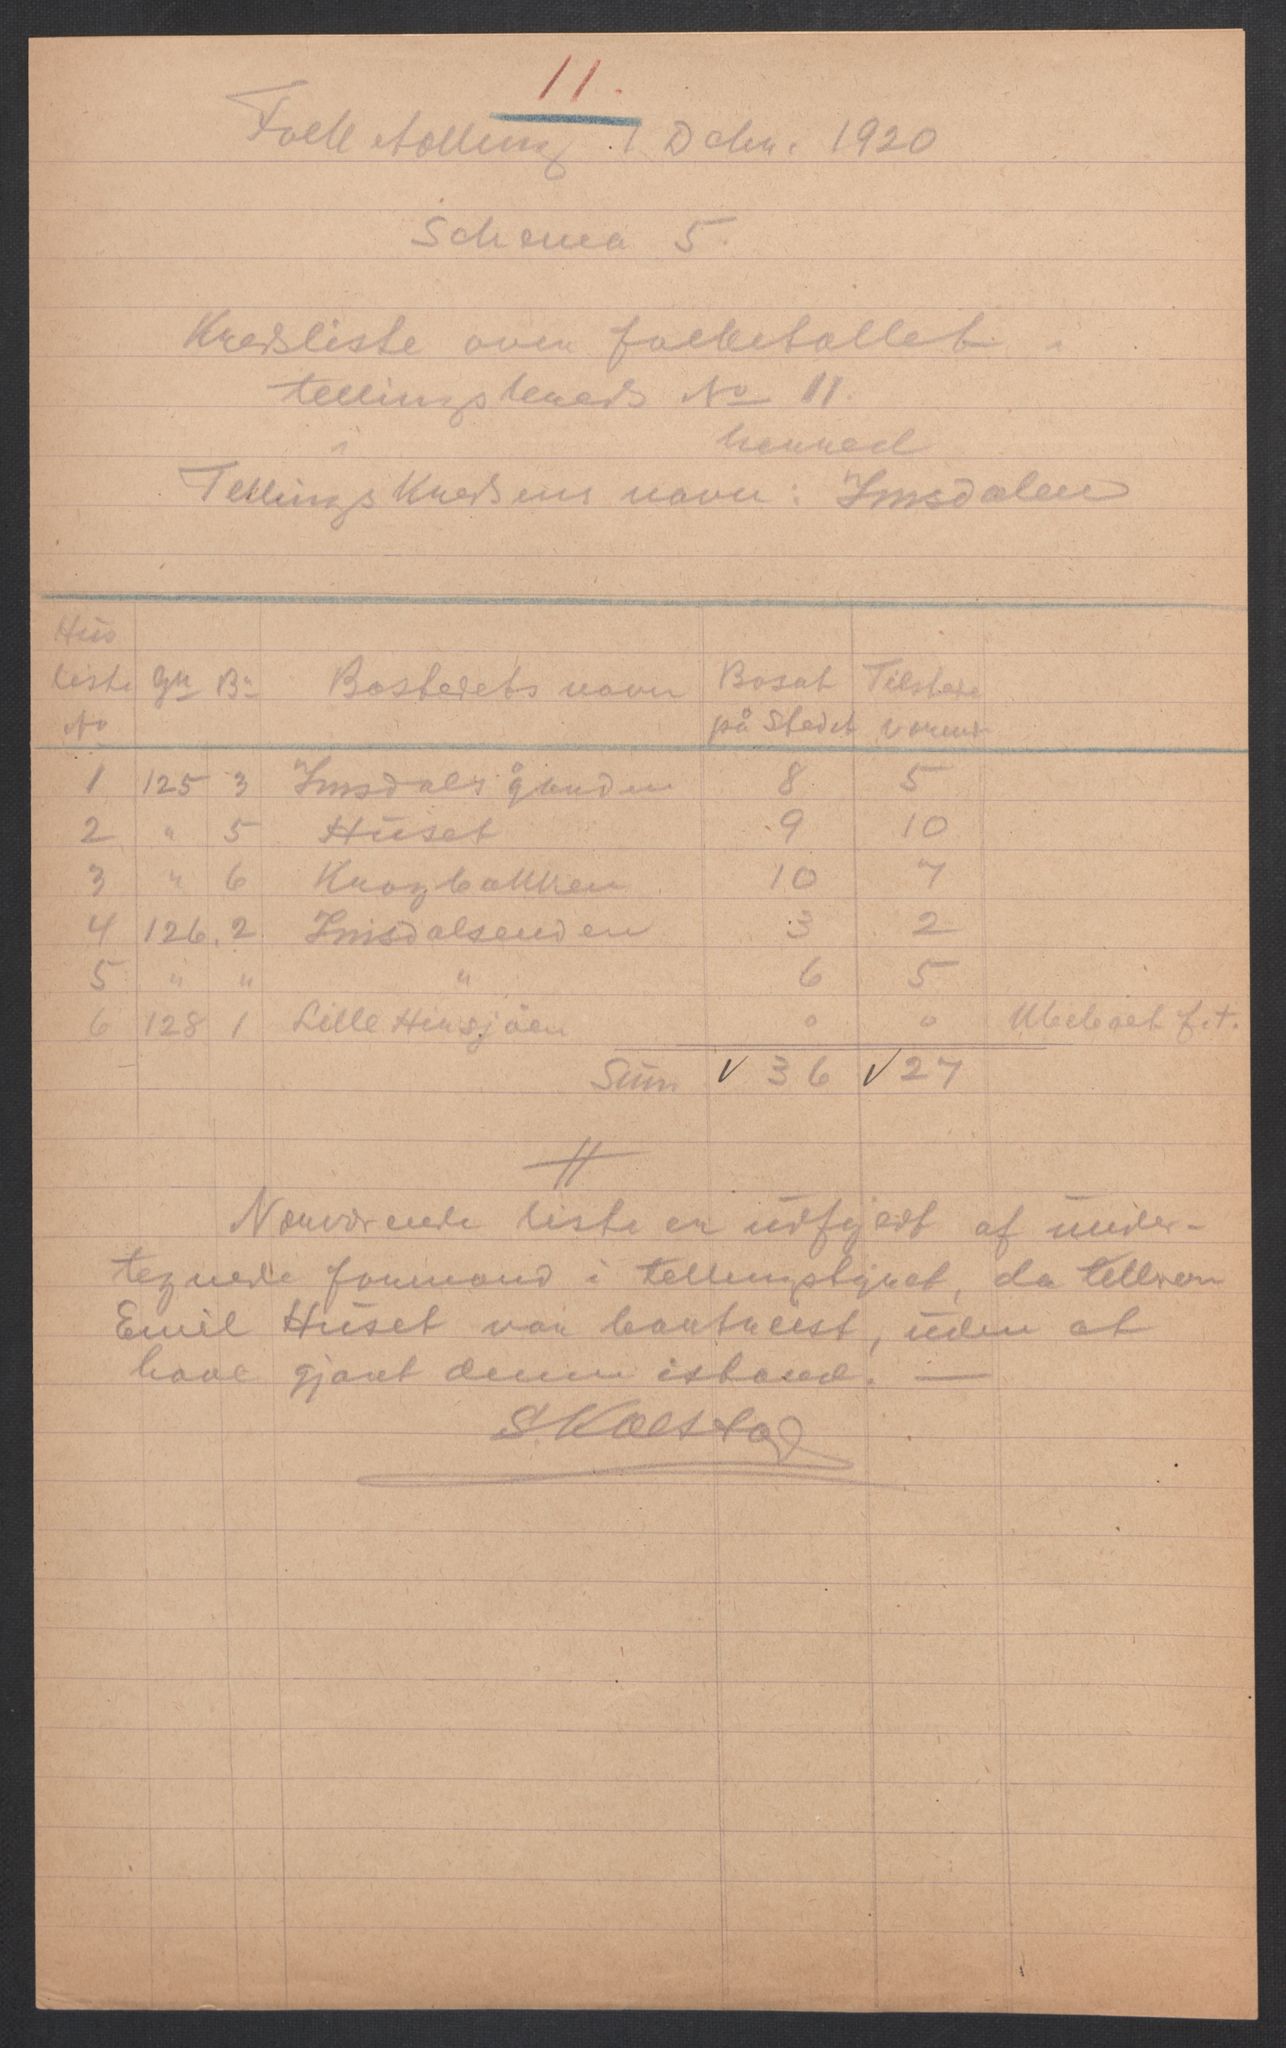 11.
Folketelling 1 Dcbr. 1920
Schema 5.
Kredsliste over folketallet i
tellingskreds No 11.
i herred
Tellingskredsens navn: Imsdalen
Hus
liste Gn Bn Bostedets navn Bosat Tilstede
No på Stedet værend
1 125 3 Imsdalsgården 8 5
2 " 5 Huset 9 10
3 " 6 Krogbakken 10 7
4 126. 2 Imsdalsenden 3 2
5 " " " 6 5
6 128 1 Lille Hirsjøen 0 0 Ubeboet f.t.
Sum 36 27
Nærværende liste er udfyldt af under-
tegnede formand i tellingstyret, da telleren
Emil Huset var bortreist, uden at
have gjort denne istand. —
S. Kolstad